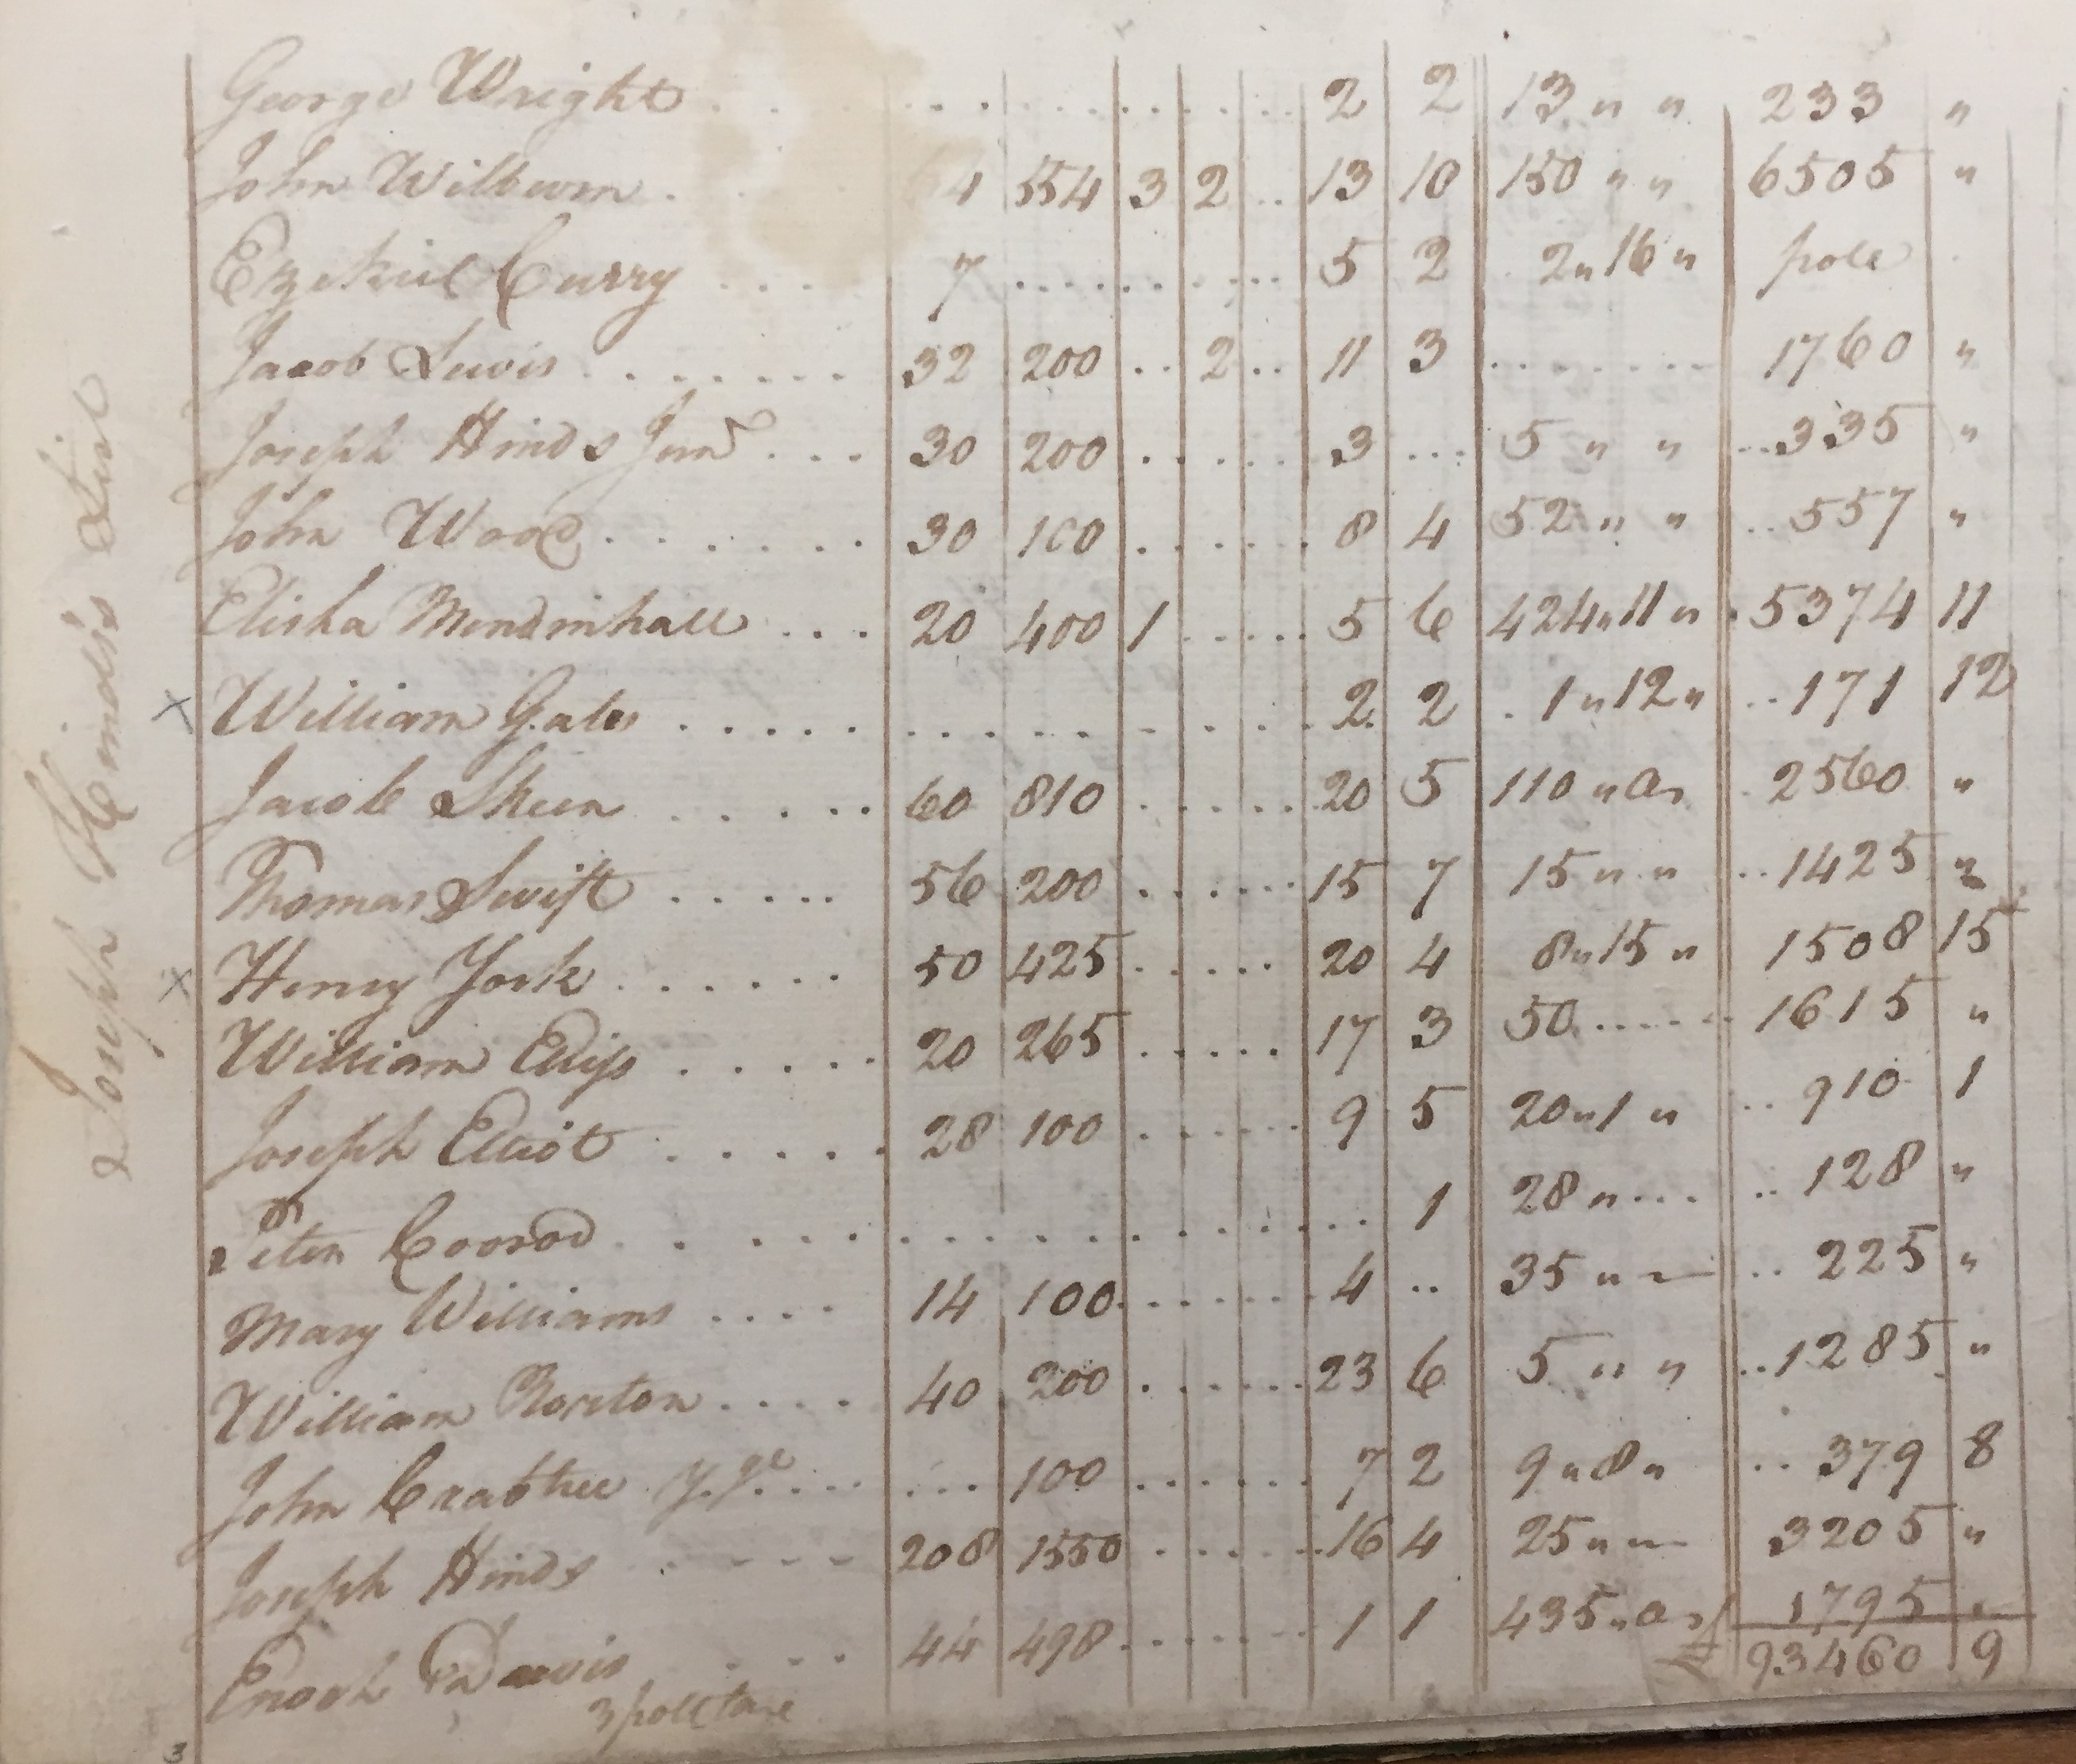 George Wright . . . . . . . . . . . 2 2 13 " " 233 "
John Wilburn . 4 554 3 2 .. 13 10 150 " " 6505 "
Ezekiel Curry . . . . 7 . . . . . . . . 5 2 2 " 16 " pole
Jacob Lewis . . . . . . . 32 200 .. 2 .. 11 3 . . . . . . . 1760 "
Joseph Hinds Junr . . . 30 200 . . . . . 3 ... 5 " " ... 335 "
John Wood . . . . . . . 30 100 . . . . . 8 4 52 " " .. 557 "
Elisha Mendinhall . . . 20 400 1 . . . . . 5 6 424 " 11 " . 5374 11
X William Gates . . . . . . . . . . . . . 2 2 . 1 " 12 " .. 171 12
Jacob Skeen . . . . . 60 810 . . . . . 20 5 110 " 0 " . 2560 "
Thomas Swift . . . . . . 56 200 . . . . . 15 7 15 " " .. 1425 "
X Henry York . . . . . . 50 425 . . . . . 20 4 8 " 15 " 1508 15
William Ellis . . . . . 20 265 . . . . . 17 3 50 . . . . . 1615 "
Joseph Elliot . . . . . 28 100 . . . . . 9 5 20 " 1 " .. 910 1
Peter Coorod . . . . . . . . . . . . 1 28 " . . . .. 128 "
Mary Williams . . . . 14 100 . . . . . . 4 .. 35 " — .. 225 "
William Roriton . . . . 40 200 . . . . . 23 6 5 " " .. 1285 "
John Crabtree . . . . . . 100 . . . . . . 7 2 9 " 8 " .. 379 8
Joseph Hinds - - - - 208 1550 . . . . . 16 4 25 " — 3205 "
Enoch Davis . . . 44 498 . . . . . . 1 1 435 " 0 " 1795 "
3 poll tax £ 93460 9
Joseph Hinds's List
3